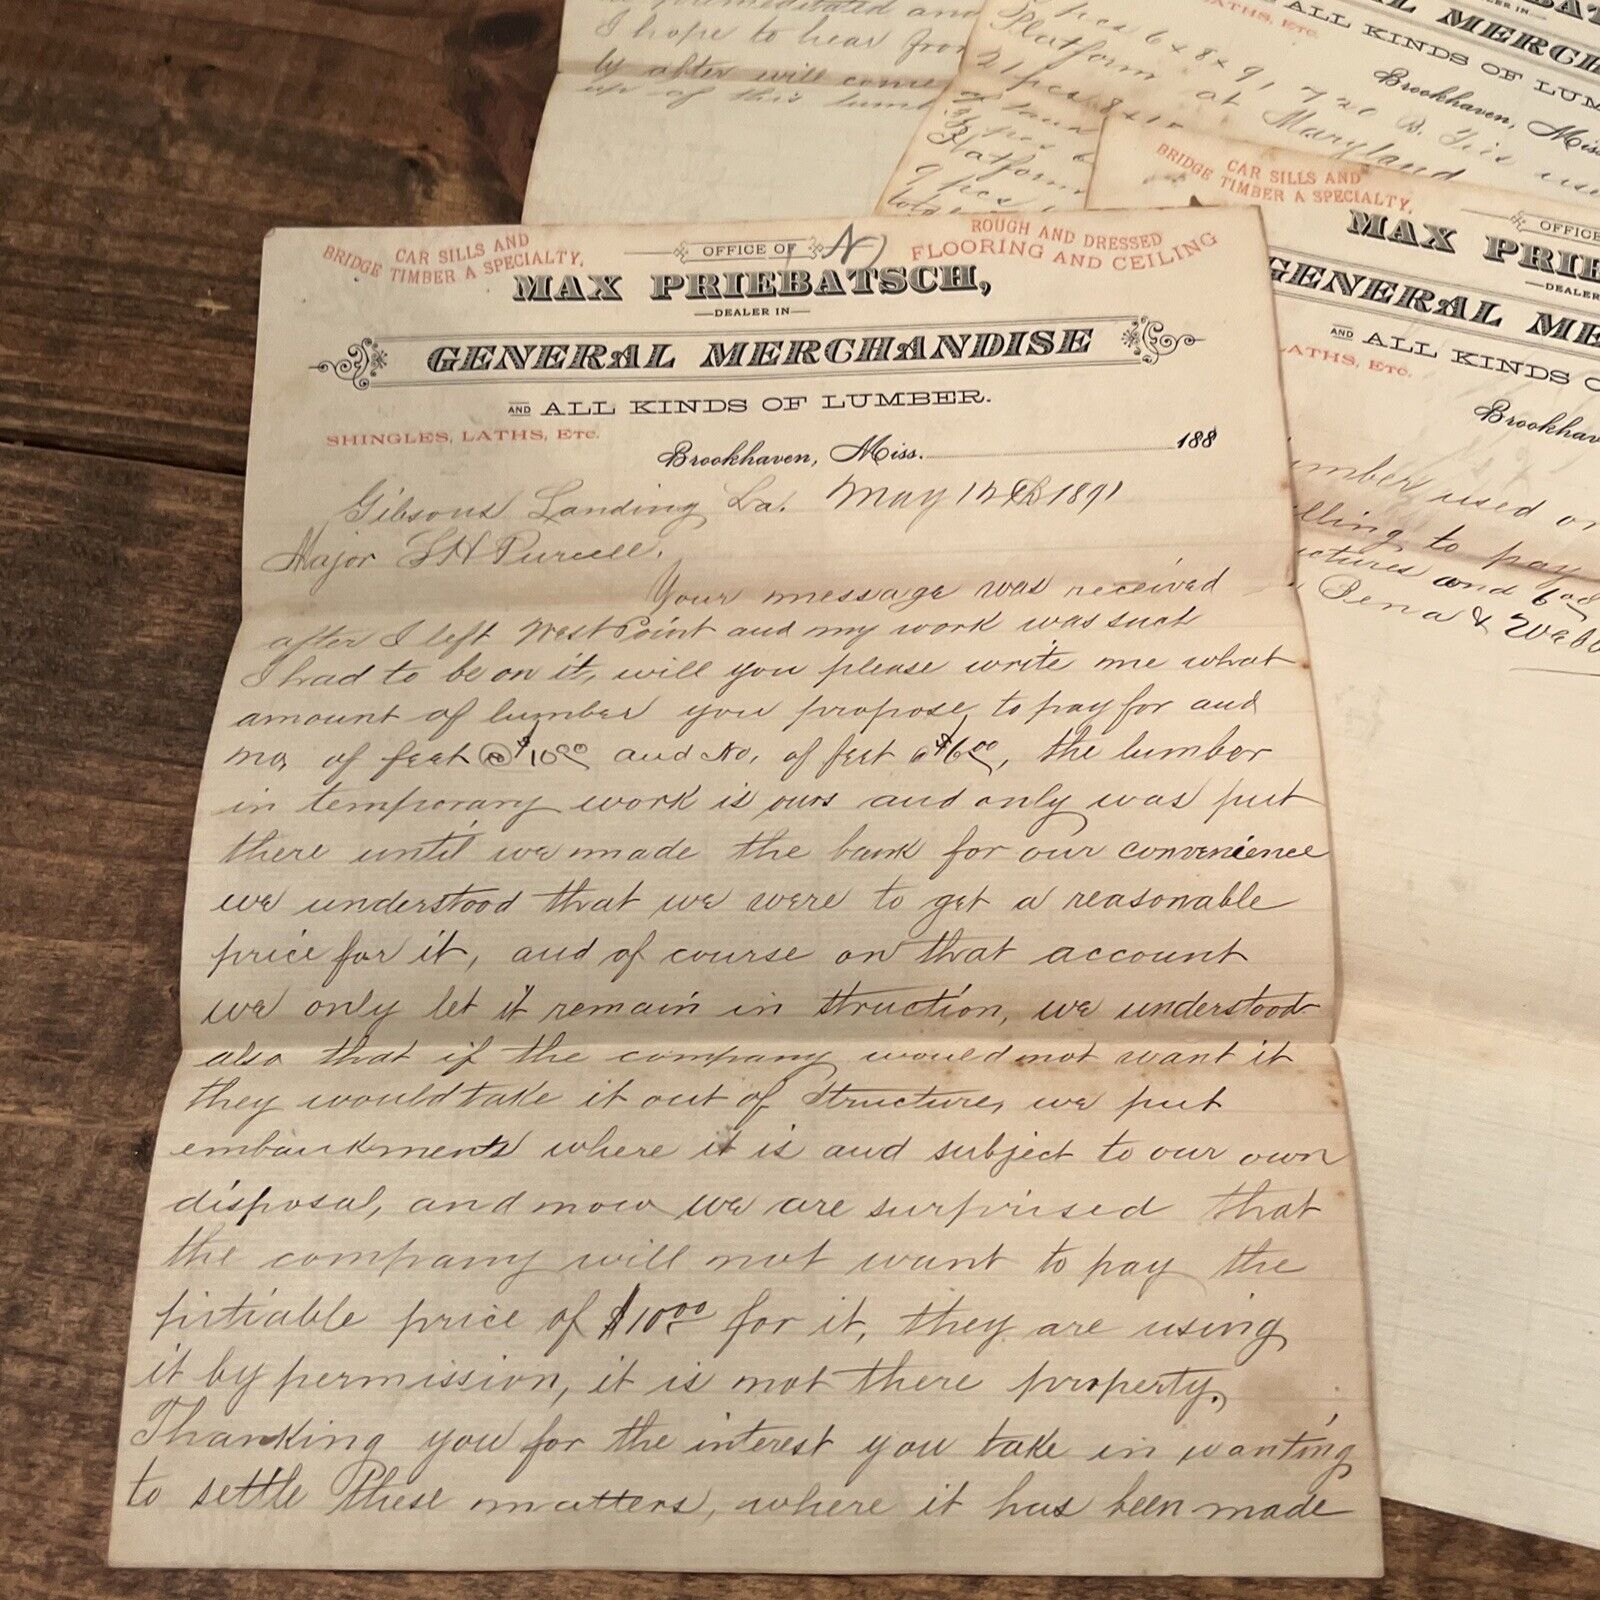 CAR SILLS AND
BRIDGE TIMBER A SPECIALTY.
OFFICE OF
ROUGH AND DRESSED
FLOORING AND CEILING
MAX PRIEBATSCH,
DEALER IN
GENERAL MERCHANDISE
AND ALL KINDS OF LUMBER.
SHINGLES, LATHS, ETC.
Brookhaven, Miss. 188
Gibsons Landing La. May 1891
Major Purcell.
Your message was received
after I left West Point and my work was such
I had to be on it, will you please write me what
amount of lumber you propose, to pay for and
no, of feet @ $10.00 and No, of feet @ $6.00, the lumber
in temporary work is ours and only was put
there until we made the bank for our convenience
we understood that we were to get a reasonable
price for it, and of course on that account
we only let it remain in struction, we understood
also that if the company would not want it
they would take it out of Structure, we put
embankments where it is and subject to our own
disposal, and now we are surprised that
the company will not want to pay the
pirtiable price of $10.00 for it, they are using
it by permission, it is not there property.
Thanking you for the interest you take in wanting
to settle these matters, where it has been made
I hope to hear from
by after will come
of this
pcs 6 x 8 x 9,
Platform at Maryland
21 pcs 8 x 10
Platform
9 pcs
DEALER IN
ALL KINDS OF LUM
LATHS, ETC.
Brookhaven, Miss
CAR SILLS AND
BRIDGE TIMBER A SPECIALTY.
OFFICE
MAX PRIE
DEALER
GENERAL ME
AND ALL KINDS O
LATHS, ETC.
Brookhaven
used on
to pay
and
Pena & Webb